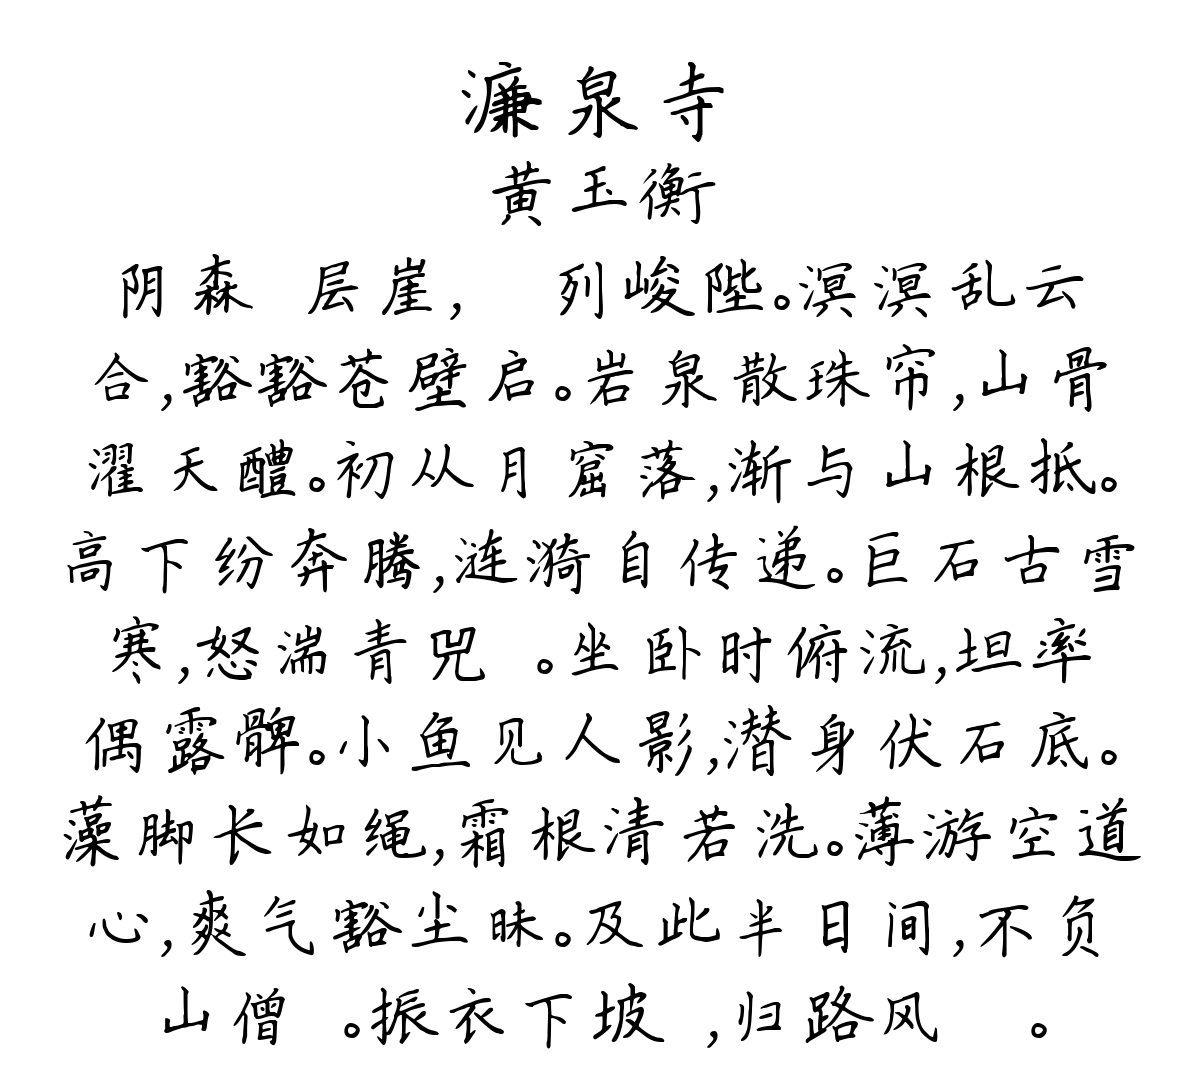 濂泉寺
黄玉衡
阴森 层崖, 列峻陛。溟溟乱云
合,豁豁苍壁启。岩泉散珠帘,山骨
濯天醴。初从月窟落,渐与山根抵。
高下纷奔腾,涟漪自传递。巨石古雪
寒,怒湍青兕 。坐卧时俯流,坦率
偶露髀。小鱼见人影,潜身伏石底。
藻脚长如绳,霜根清若洗。薄游空道
心,爽气豁尘昧。及此半日间,不负
山僧 。振衣下坡 ,归路风 。